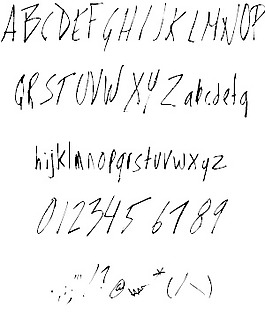 ABCDEFGHIJKLMNOP
QRSTUVWXYZabcdefg
hijklmnopqrstuvwxyz
0123456789
.,:;"!?@*(/\)